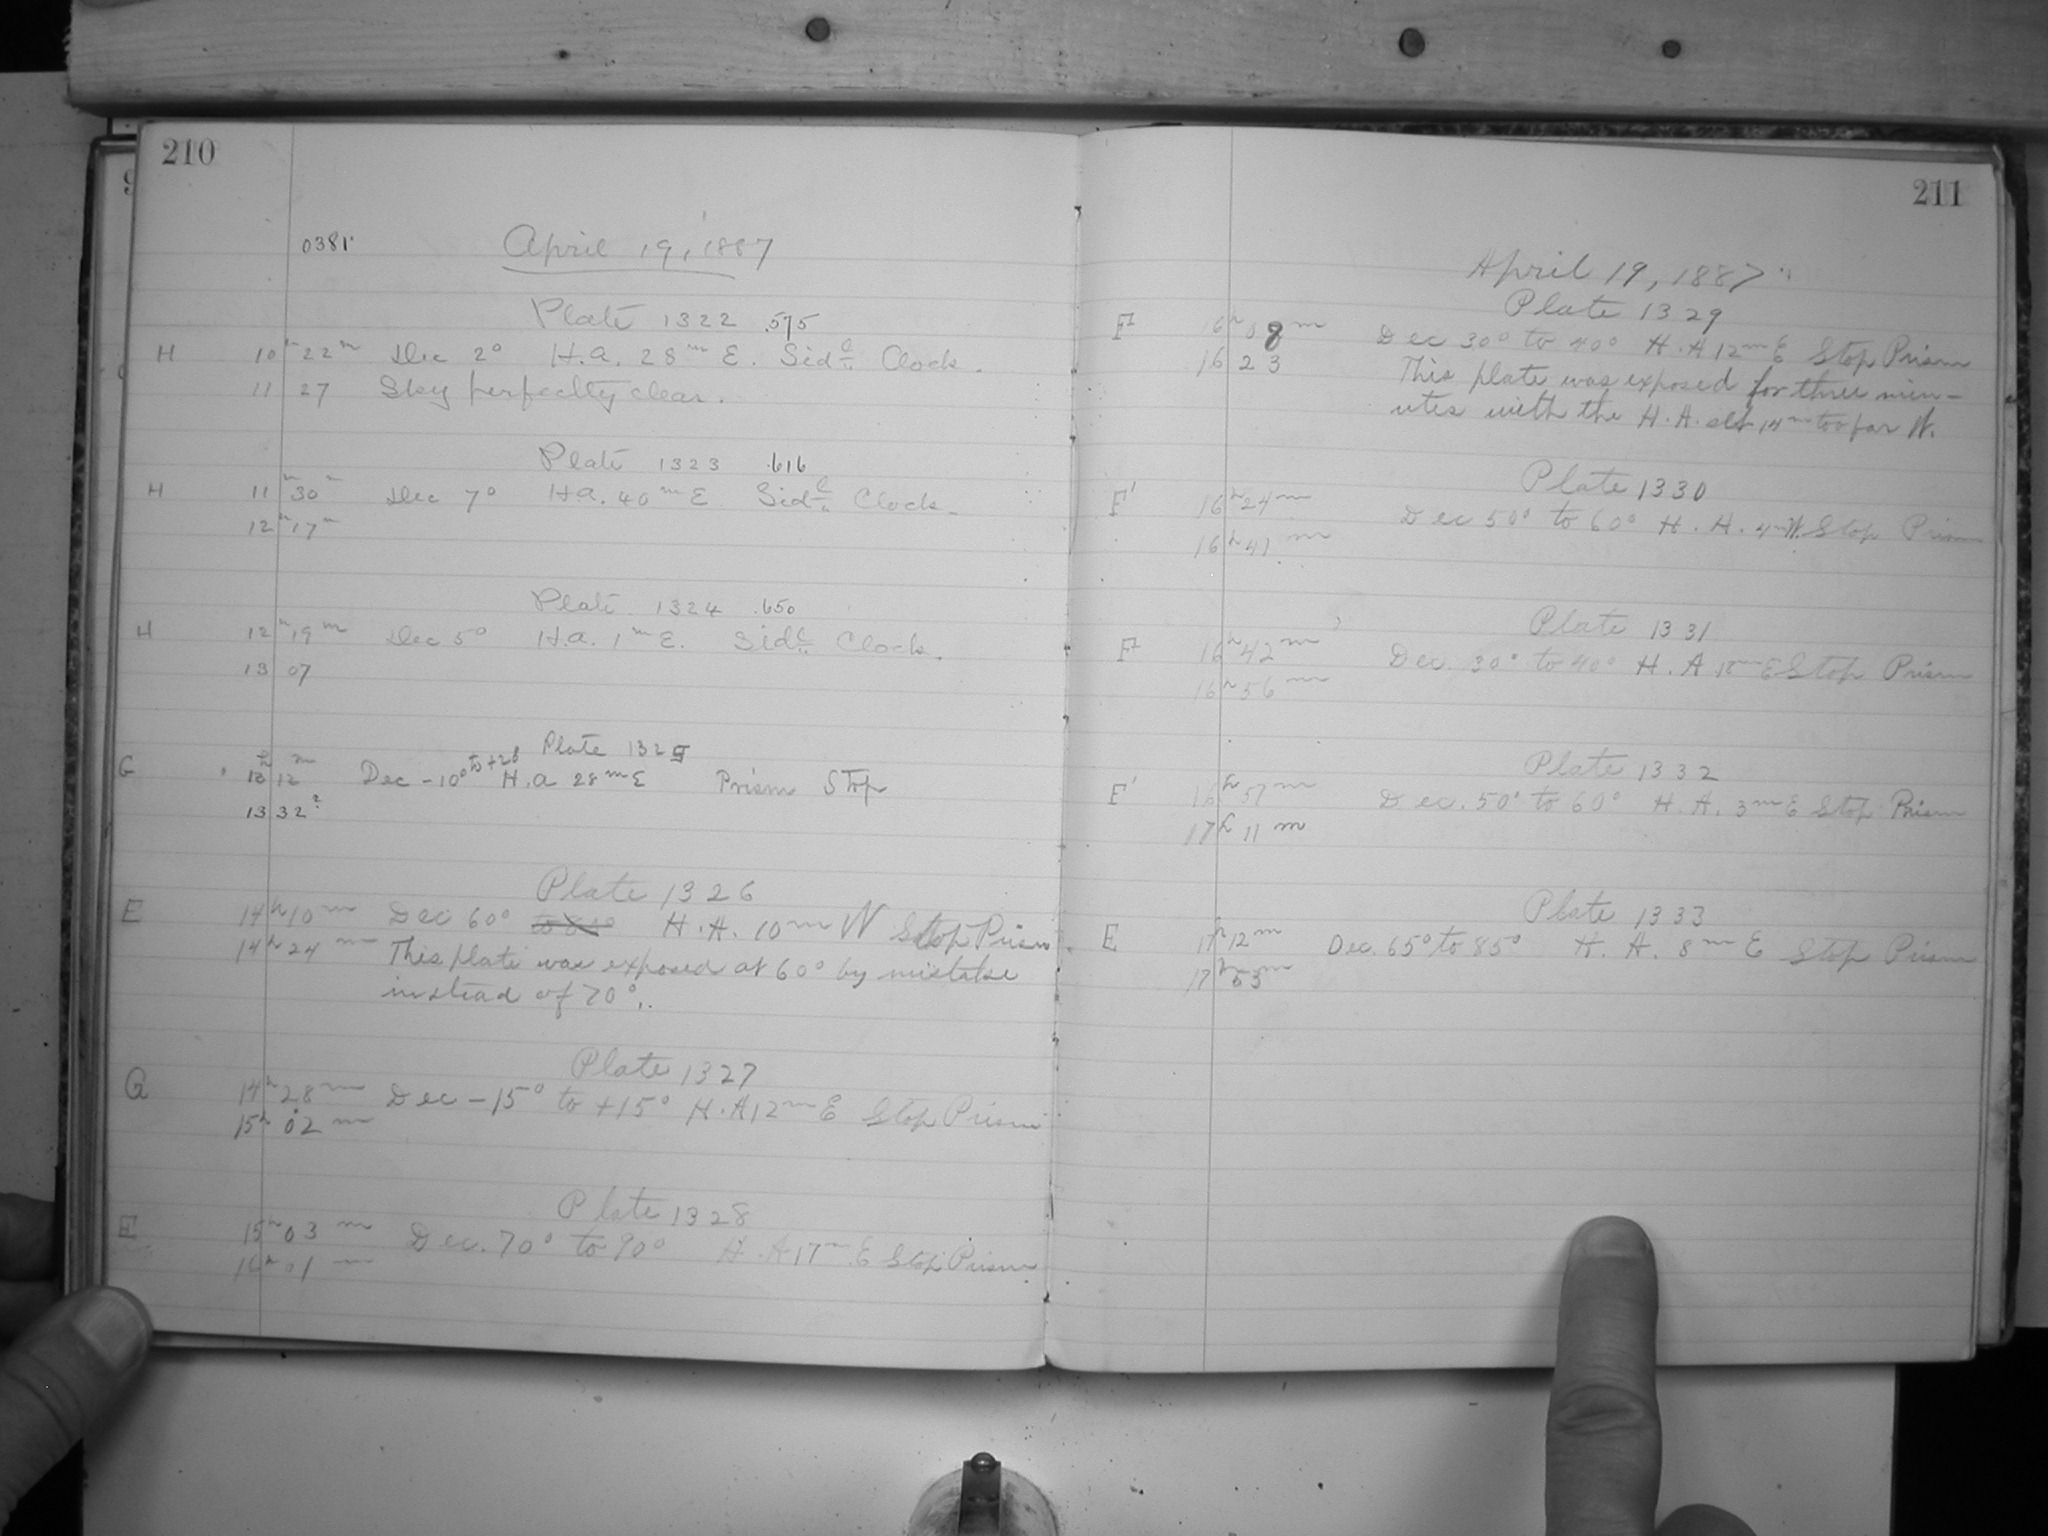 210
0381
April 19, 1887
Plate 1322 .575
H 10h 22m Dec 2° H.a. 28m E. Sidl. Clock.
11 27 Sky perfectly clear.
Plate 1323 .616
H 11h 30m Dec 7° H.a. 40m E Sidl. Clock.
12h 17m
Plate 1324 .650
H 12h 19m Dec 5° H.a. 1m E. Sidl. Clock.
13 07
Plate 1325
G 13h 12m Dec -10° to +20 H.a 28m E Prism Stop
13 32?
Plate 1326
E 14h 10m Dec 60° H.A. 10m W Stop Prism
14h 24m This plate was exposed at 60° by mistake
instead of 70°.
Plate 1327
G 14h 28m Dec -15° to +15° H.A 12m E Stop Prism
15h 02m
Plate 1328
E 15h 03m Dec. 70° to 90° H.A 17m E Stop Prism
16h 01m
211
April 19, 1887
Plate 1329
F' 16h 08m Dec 30° to 40° H.A 12m E Stop Prism
16 23 This plate was exposed for three min-
utes with the H.A. set 14m too far W.
Plate 1330
F' 16h 24m Dec 50° to 60° H.A. 4m W. Stop Prism
16h 41m
Plate 1331
F' 16h 42m Dec. 30° to 40° H.A 18m E Stop Prism
16h 56m
Plate 1332
F' 16h 57m Dec. 50° to 60° H.A. 3m E Stop Prism
17h 11m
Plate 1333
E 17h 12m Dec. 65° to 85° H.A. 8m E Stop Prism
17h 53m